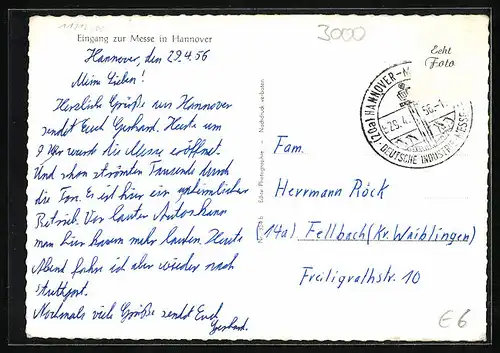 3000
Eingang zur Messe in Hannover
Hannover, den 29.4.56
Meine Lieben!
Herzliche Grüße aus Hannover
sendet Euch Gerhard. Heute um
9 Uhr wurde die Messe eröffnet.
Und schon strömten Tausende durch
die Tore. Es ist hier ein unheimlicher
Betrieb. Vor lauter Autos kann
man hier kaum mehr laufen. Heute
Abend fahre ich aber wieder nach
Stuttgart.
Nochmals viele Grüße sendet Euch
Gerhard.
Echte Photographie - Nachdruck verboten
Echt
Foto
(20a) HANNOVER-
29.4.56.-1
DEUTSCHE INDUSTRIE-MESSE
Fam.
Herrmann Röck
(14a) Fellbach (Kr. Waiblingen)
Freiligrathstr. 10
€6